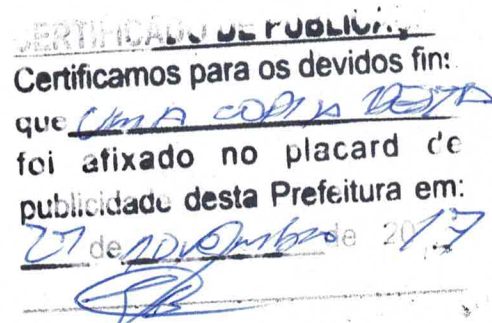 CERTIFICADO DE PUBLICAÇ
Certificamos para os devidos fins
que UMA COPIA DESTA
foi afixado no placard de
publicidade desta Prefeitura em:
27 de novembro de 2017